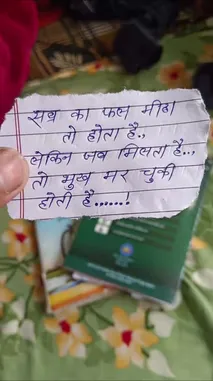 सब्र का फल मीठा
तो होता है.,
लेकिन जब मिलता है..,
तो भुख मर चुकी
होती है.......